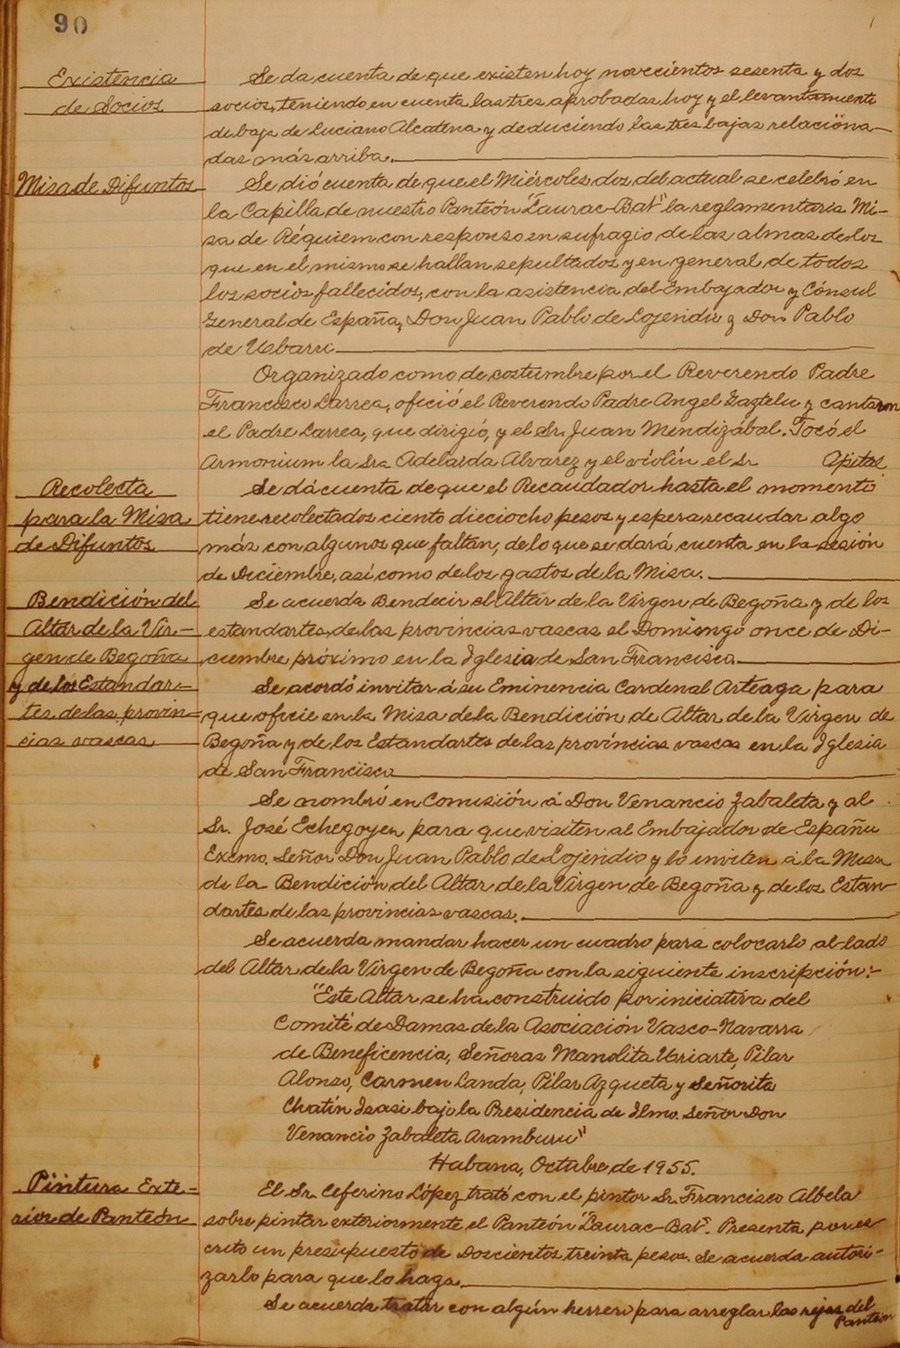 90
Existencia
de Socios
Se da cuenta de que existen hoy novecientos sesenta y dos
socios, teniendo en cuenta las tres aprobadas hoy y el levantamiento
de baja de Luciano Alcatena y deduciendo las tres bajas relaciona-
das más arriba.
Misa de Difuntos
Se dió cuenta de que el Miércoles dos del actual se celebró en
la Capilla de nuestro Panteón "Laurac-Bat" la reglamentaria Mi-
sa de Réquiem con responso en sufragio de las almas de los
que en el mismo se hallan sepultados y en general de todos
los socios fallecidos, con la asistencia del Embajador y Cónsul
General de España, Don Juan Pablo de Lojendio y Don Pablo
de Ubarri
Organizado como de costumbre por el Reverendo Padre
Francisco Larrea, ofició el Reverendo Padre Angel Gaztelu y cantaron
el Padre Larrea, que dirigió, y el Sr. Juan Mendizábal. Tocó el
Armonium la Sra Adelarda Alvarez y el violín el Sr
Recolecta
para la Misa
de Difuntos
Se dá cuenta de que el Recaudador hasta el momento
tiene recolectados ciento dieciocho pesos y espera recaudar algo
más con algunos que faltan, de lo que se dará cuenta en la sesión
de Diciembre, así como de los gastos de la Misa.
Bendición del
Altar de la Vir-
gen de Begoña
y de los Estandar-
tes de las provin-
cias vascas
Se acuerda Bendecir el Altar de la Virgen de Begoña y de los
estandartes de las provincias vascas el Domingo once de Di-
ciembre próximo en la Iglesia de San Francisco
Se acordó invitar á su Eminencia Cardenal Arteaga para
que oficie en la Misa de la Bendición de Altar de la Virgen de
Begoña y de los Estandartes de las provincias vascas en la Iglesia
de San Francisco
Se nombró en Comisión á Don Venancio Zabaleta y al
Sr. José Echegoyen para que visiten al Embajador de España
Excmo. Señor Don Juan Pablo de Lojendio y lo inviten á la Misa
de la Bendición del Altar de la Virgen de Begoña y de los Estan-
dartes de las provincias vascas.
Se acuerda mandar hacer un cuadro para colocarlo al lado
del Altar de la Virgen de Begoña con la siguiente inscripción:-
"Este Altar se ha construido por iniciativa del
Comité de Damas de la Asociación Vasco-Navarra
de Beneficencia, Señoras Manolita Uriarte, Pilar
Alonso, Carmen Landa, Pilar Azqueta y Señorita
Chatín Isasi bajo la Presidencia de Ilmo. Señor Don
Venancio Zabaleta Aramburu"
Habana, Octubre de 1955.
Pintura Exte-
rior de Panteón
El Sr. Ceferino López trató con el pintor Sr. Francisco Albela
sobre pintar exteriormente el Panteón "Laurac-Bat". Presenta por es-
crito un presupuesto de Doscientos treinta pesos. Se acuerda autori-
zarlo para que lo haga.
Se acuerda tratar con algún herrero para arreglar las rejas del
Panteón